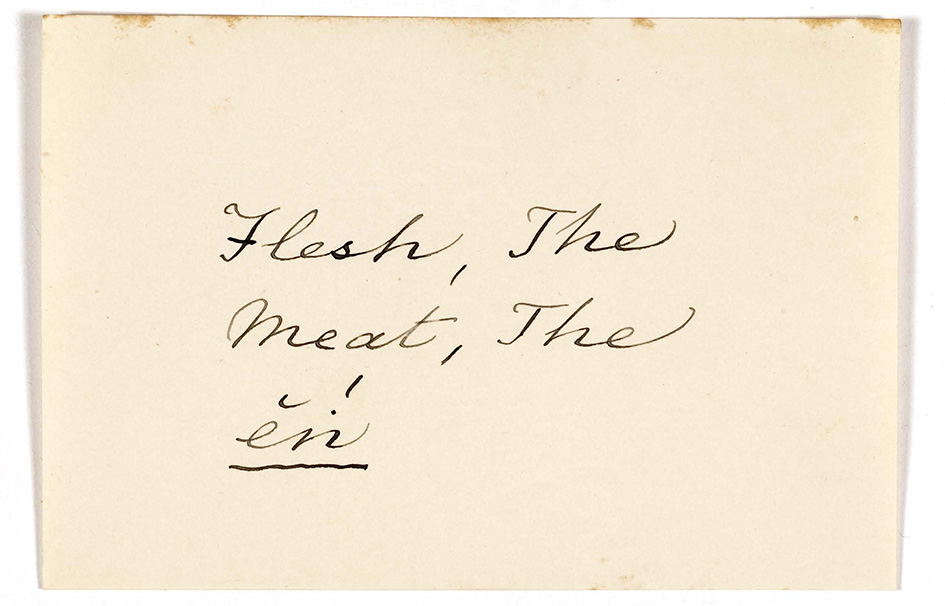 Flesh, The
Meat, The
ĕṅ'